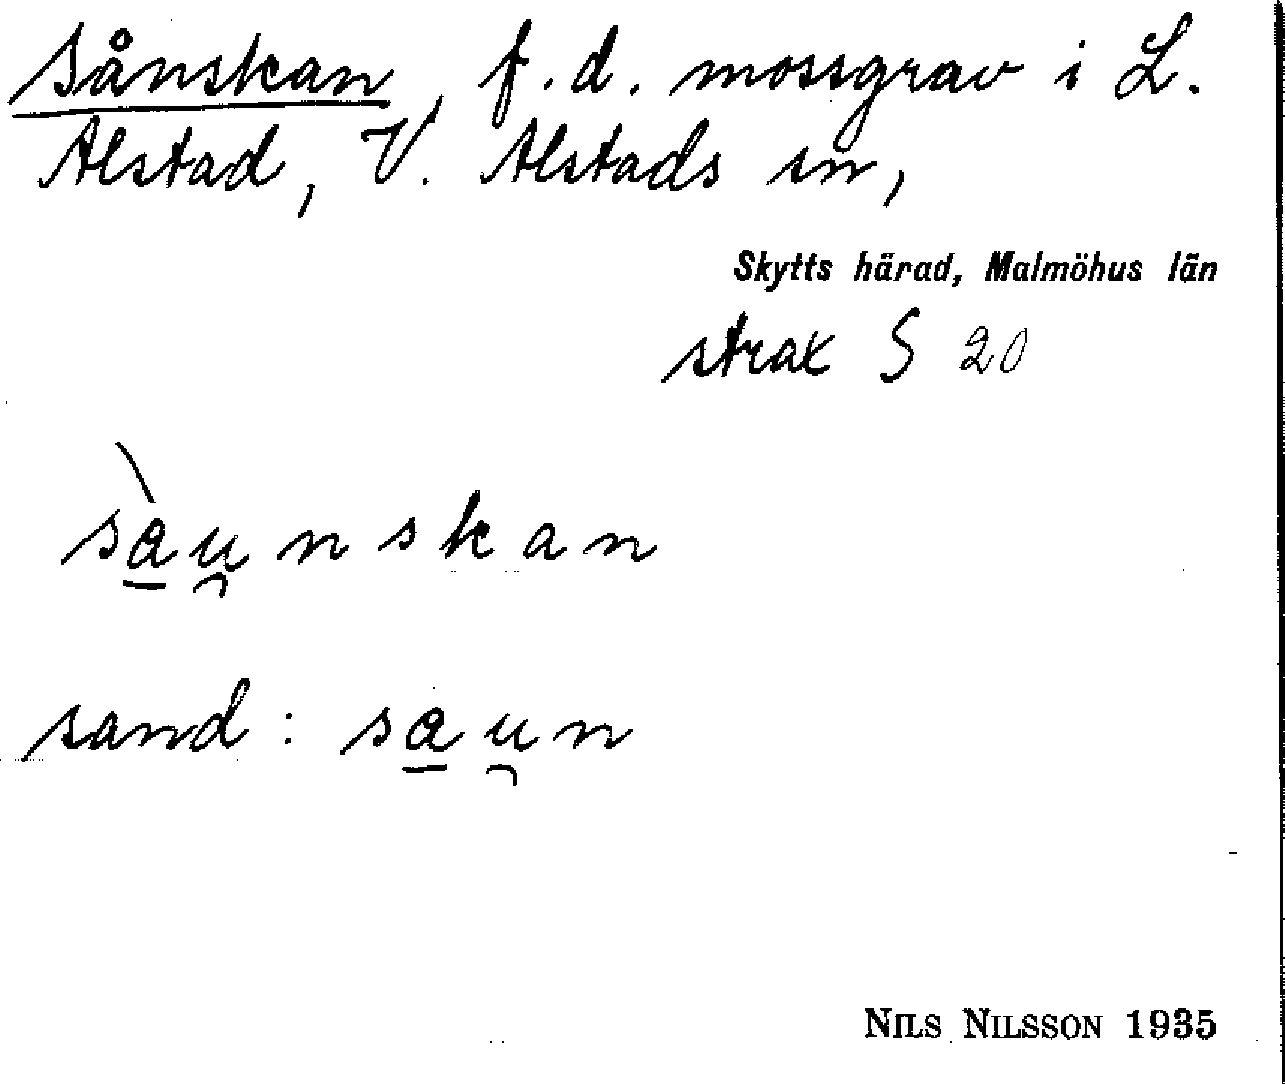 Sånskan, f.d. mossgrav i L.
Alstad, V. Alstads sn,
Skytts härad, Malmöhus län
strax S 20
sà̱u̯nskan
sand: sa̱u̯n
NILS NILSSON 1935